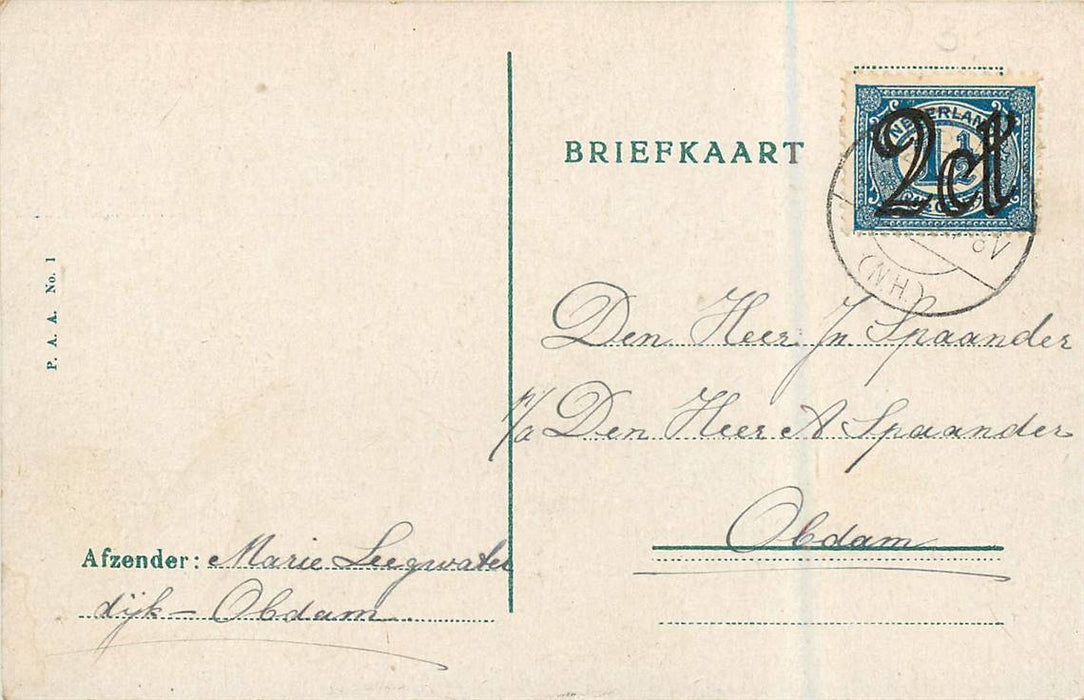 BRIEFKAART
NEDERLAND
1½
2ct
8V
(N.H.)
P. A. A. No. 1
Den Heer Jn Spaander
p/a Den Heer A Spaander
Obdam
Afzender: Marie Leegwater
dijk – Obdam.